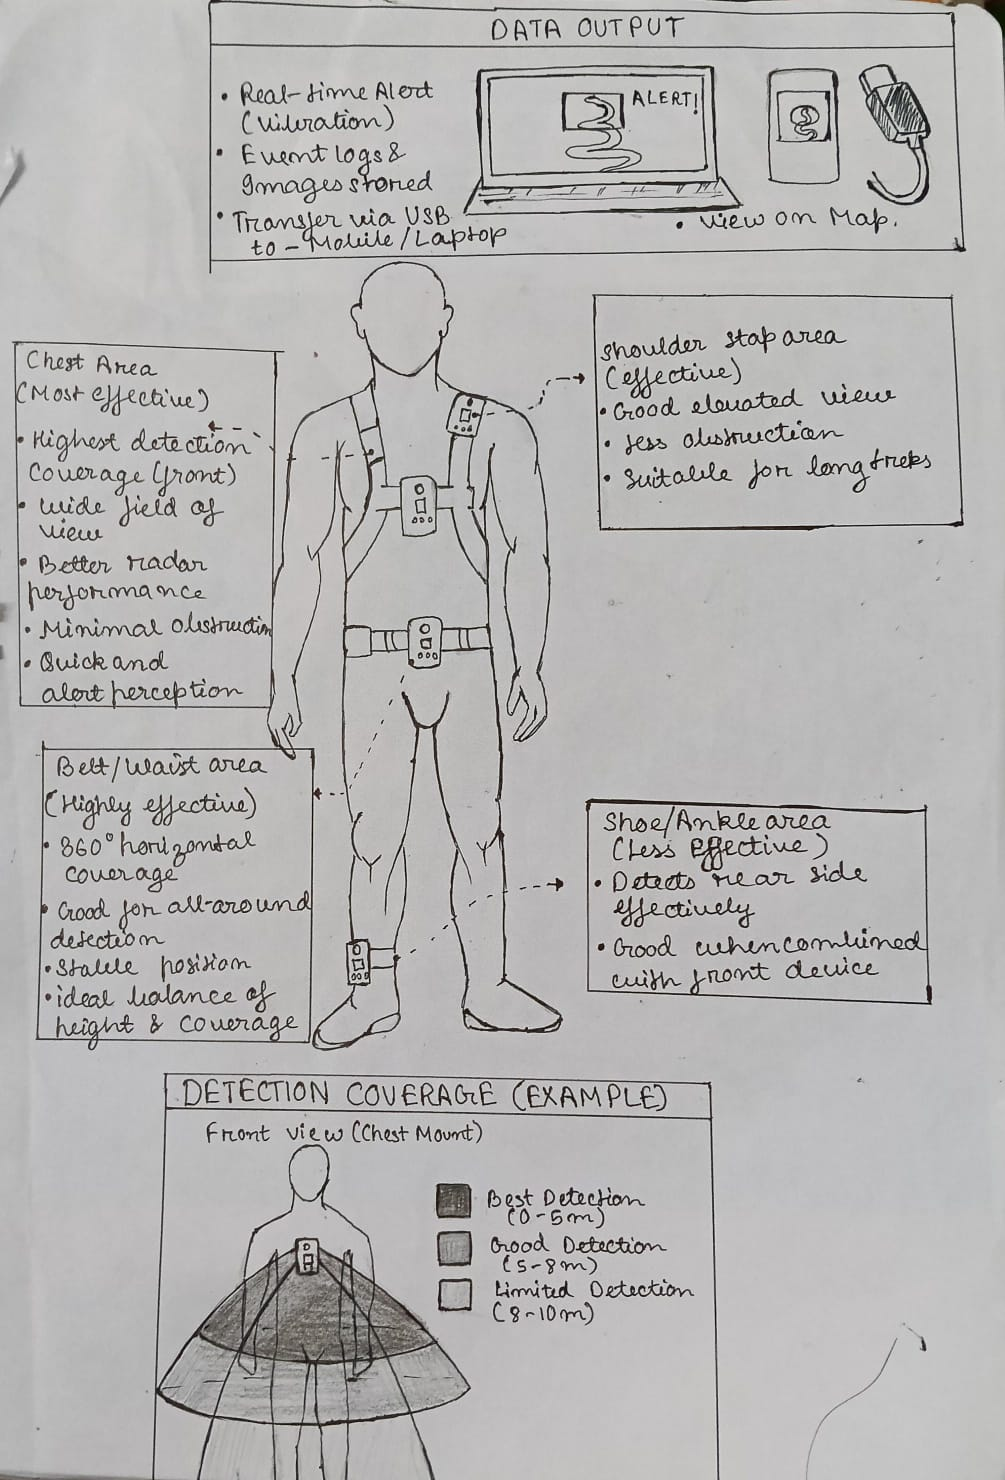 DATA OUTPUT
• Real-time Alert
(Vibration)
• Event logs &
Images stored
• Transfer via USB
to - Mobile/Laptop
ALERT!
• View on Map.
Chest Area
(Most effective)
• Highest detection
coverage (front)
• wide field of
view
• Better radar
performance
• Minimal obstruction
• Quick and
alert perception
shoulder stap area
(effective)
• Good elevated view
• Less obstruction
• Suitable for long treks
Belt/Waist area
(Highly effective)
• 360° horizontal
coverage
• Good for all-around
detection
• Stable position
• ideal balance of
height & coverage
Shoe/Ankle area
(Less Effective)
• Detects rear side
effectively
• Good when combined
with front device
DETECTION COVERAGE (EXAMPLE)
Front view (Chest Mount)
Best Detection
(0-5m)
Good Detection
(5-8m)
Limited Detection
(8-10m)